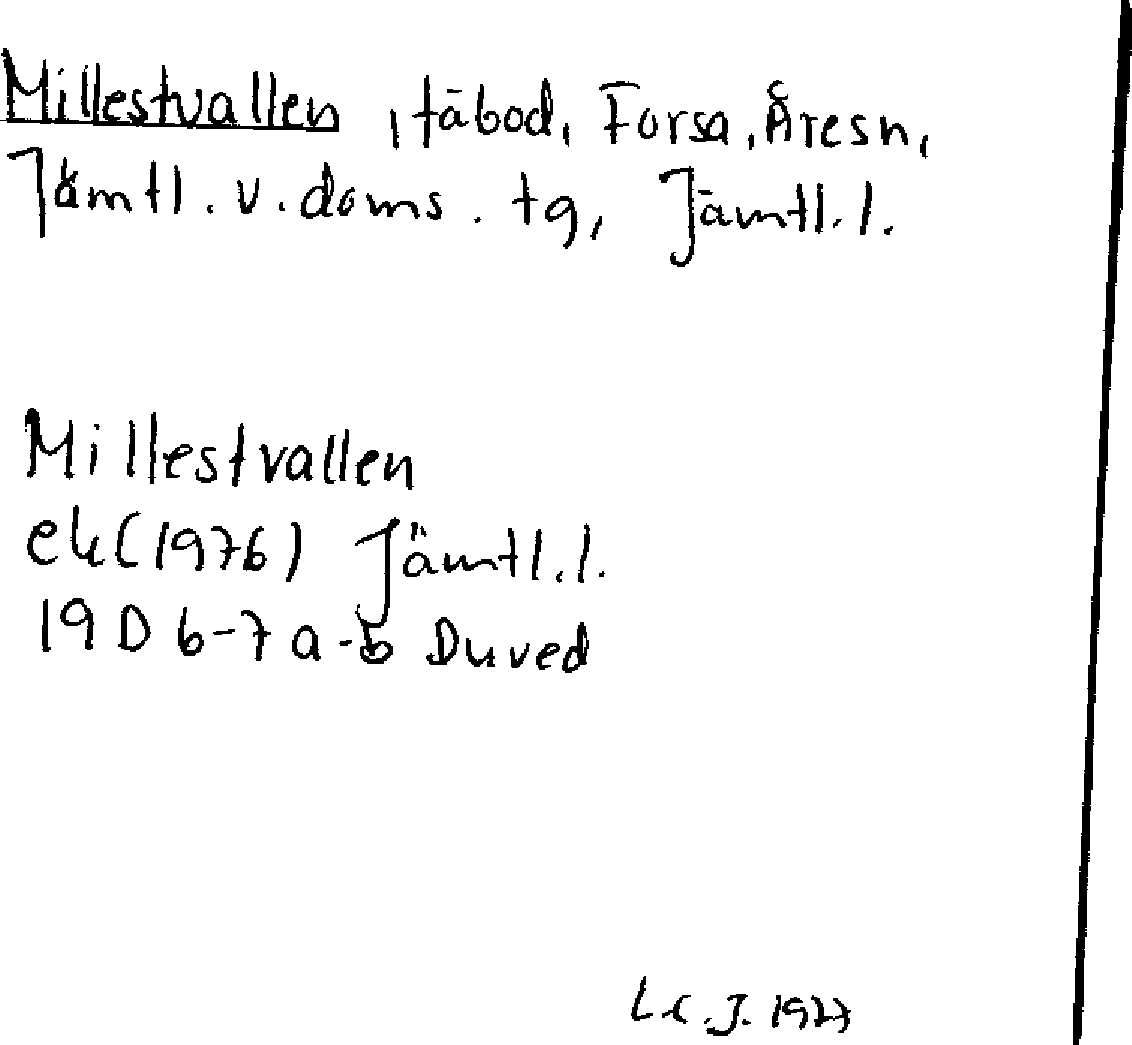 Millestvallen, fäbod, Forsa, Åresn,
Jämtl. v. doms. tg, Jämtl. l.
Millestvallen
ek (1976) Jämtl. l.
19 D 6-7 a-b Duved